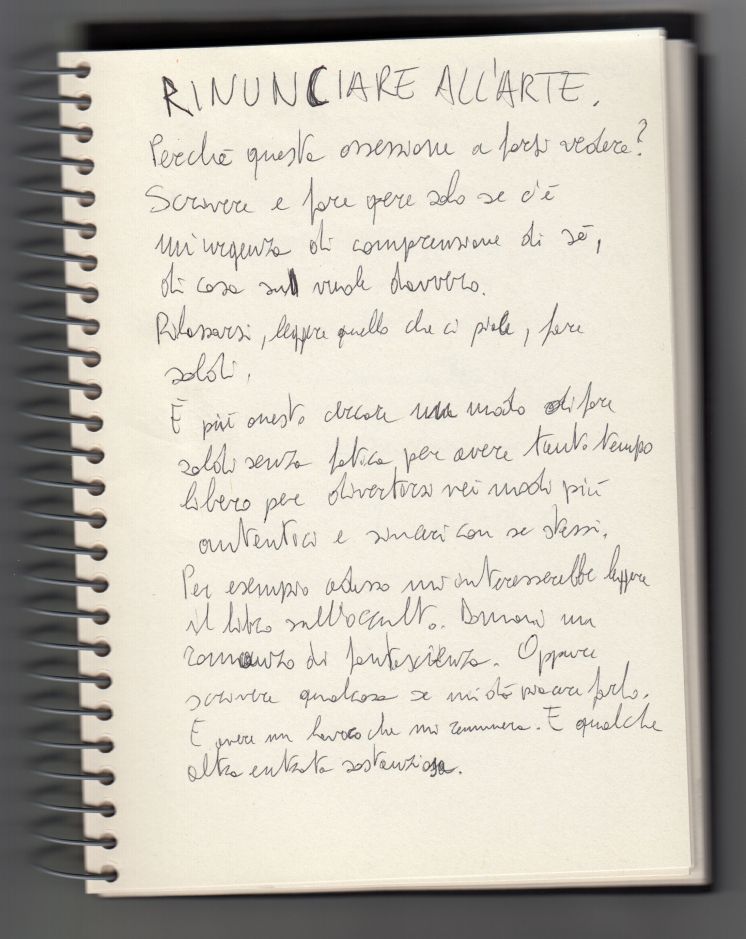 RINUNCIARE ALL'ARTE.
Perché questa ossessione a farsi vedere?
Scrivere e fare opere solo se c'è
un'urgenza di comprensione di sé,
di cosa si vuole davvero.
Rilassarsi, leggere quello che ci piace, fare
soldi.
È più onesto cercare un modo di fare
soldi senza fatica per avere tanto tempo
libero per divertirsi nei modi più
autentici e sinceri con se stessi.
Per esempio adesso mi interesserebbe leggere
il libro sull'occulto. Domani un
romanzo di fantascienza. Oppure
scrivere qualcosa se mi dà piacere farlo.
E avere un lavoro che mi remunera. E qualche
altra entrata sostanziosa.